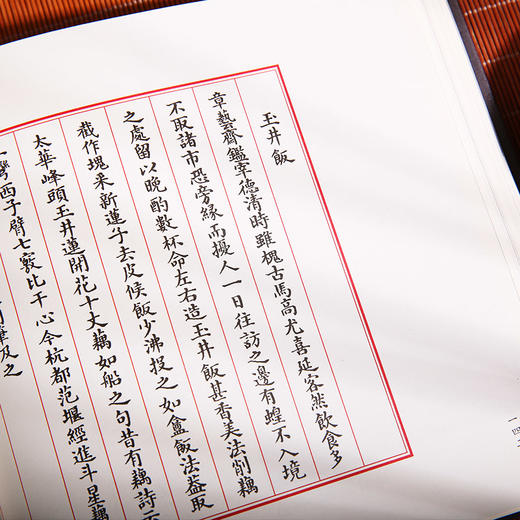 玉井飯
章藝齋鑑宰德清時雖槐古馬高尤喜延客然飲食多
不取諸市恐旁緣而擾人一日往訪之邊有蝗不入境
之處留以晚酌數杯命左右造玉井飯甚香美法削藕
截作塊采新蓮子去皮候飯少沸投之如盦飯法蓋取
太華峰頭玉井蓮開花十丈藕如船之句昔有藕詩云
一彎西子臂七竅比干心今杭都范堰經進斗星藕
筆及之